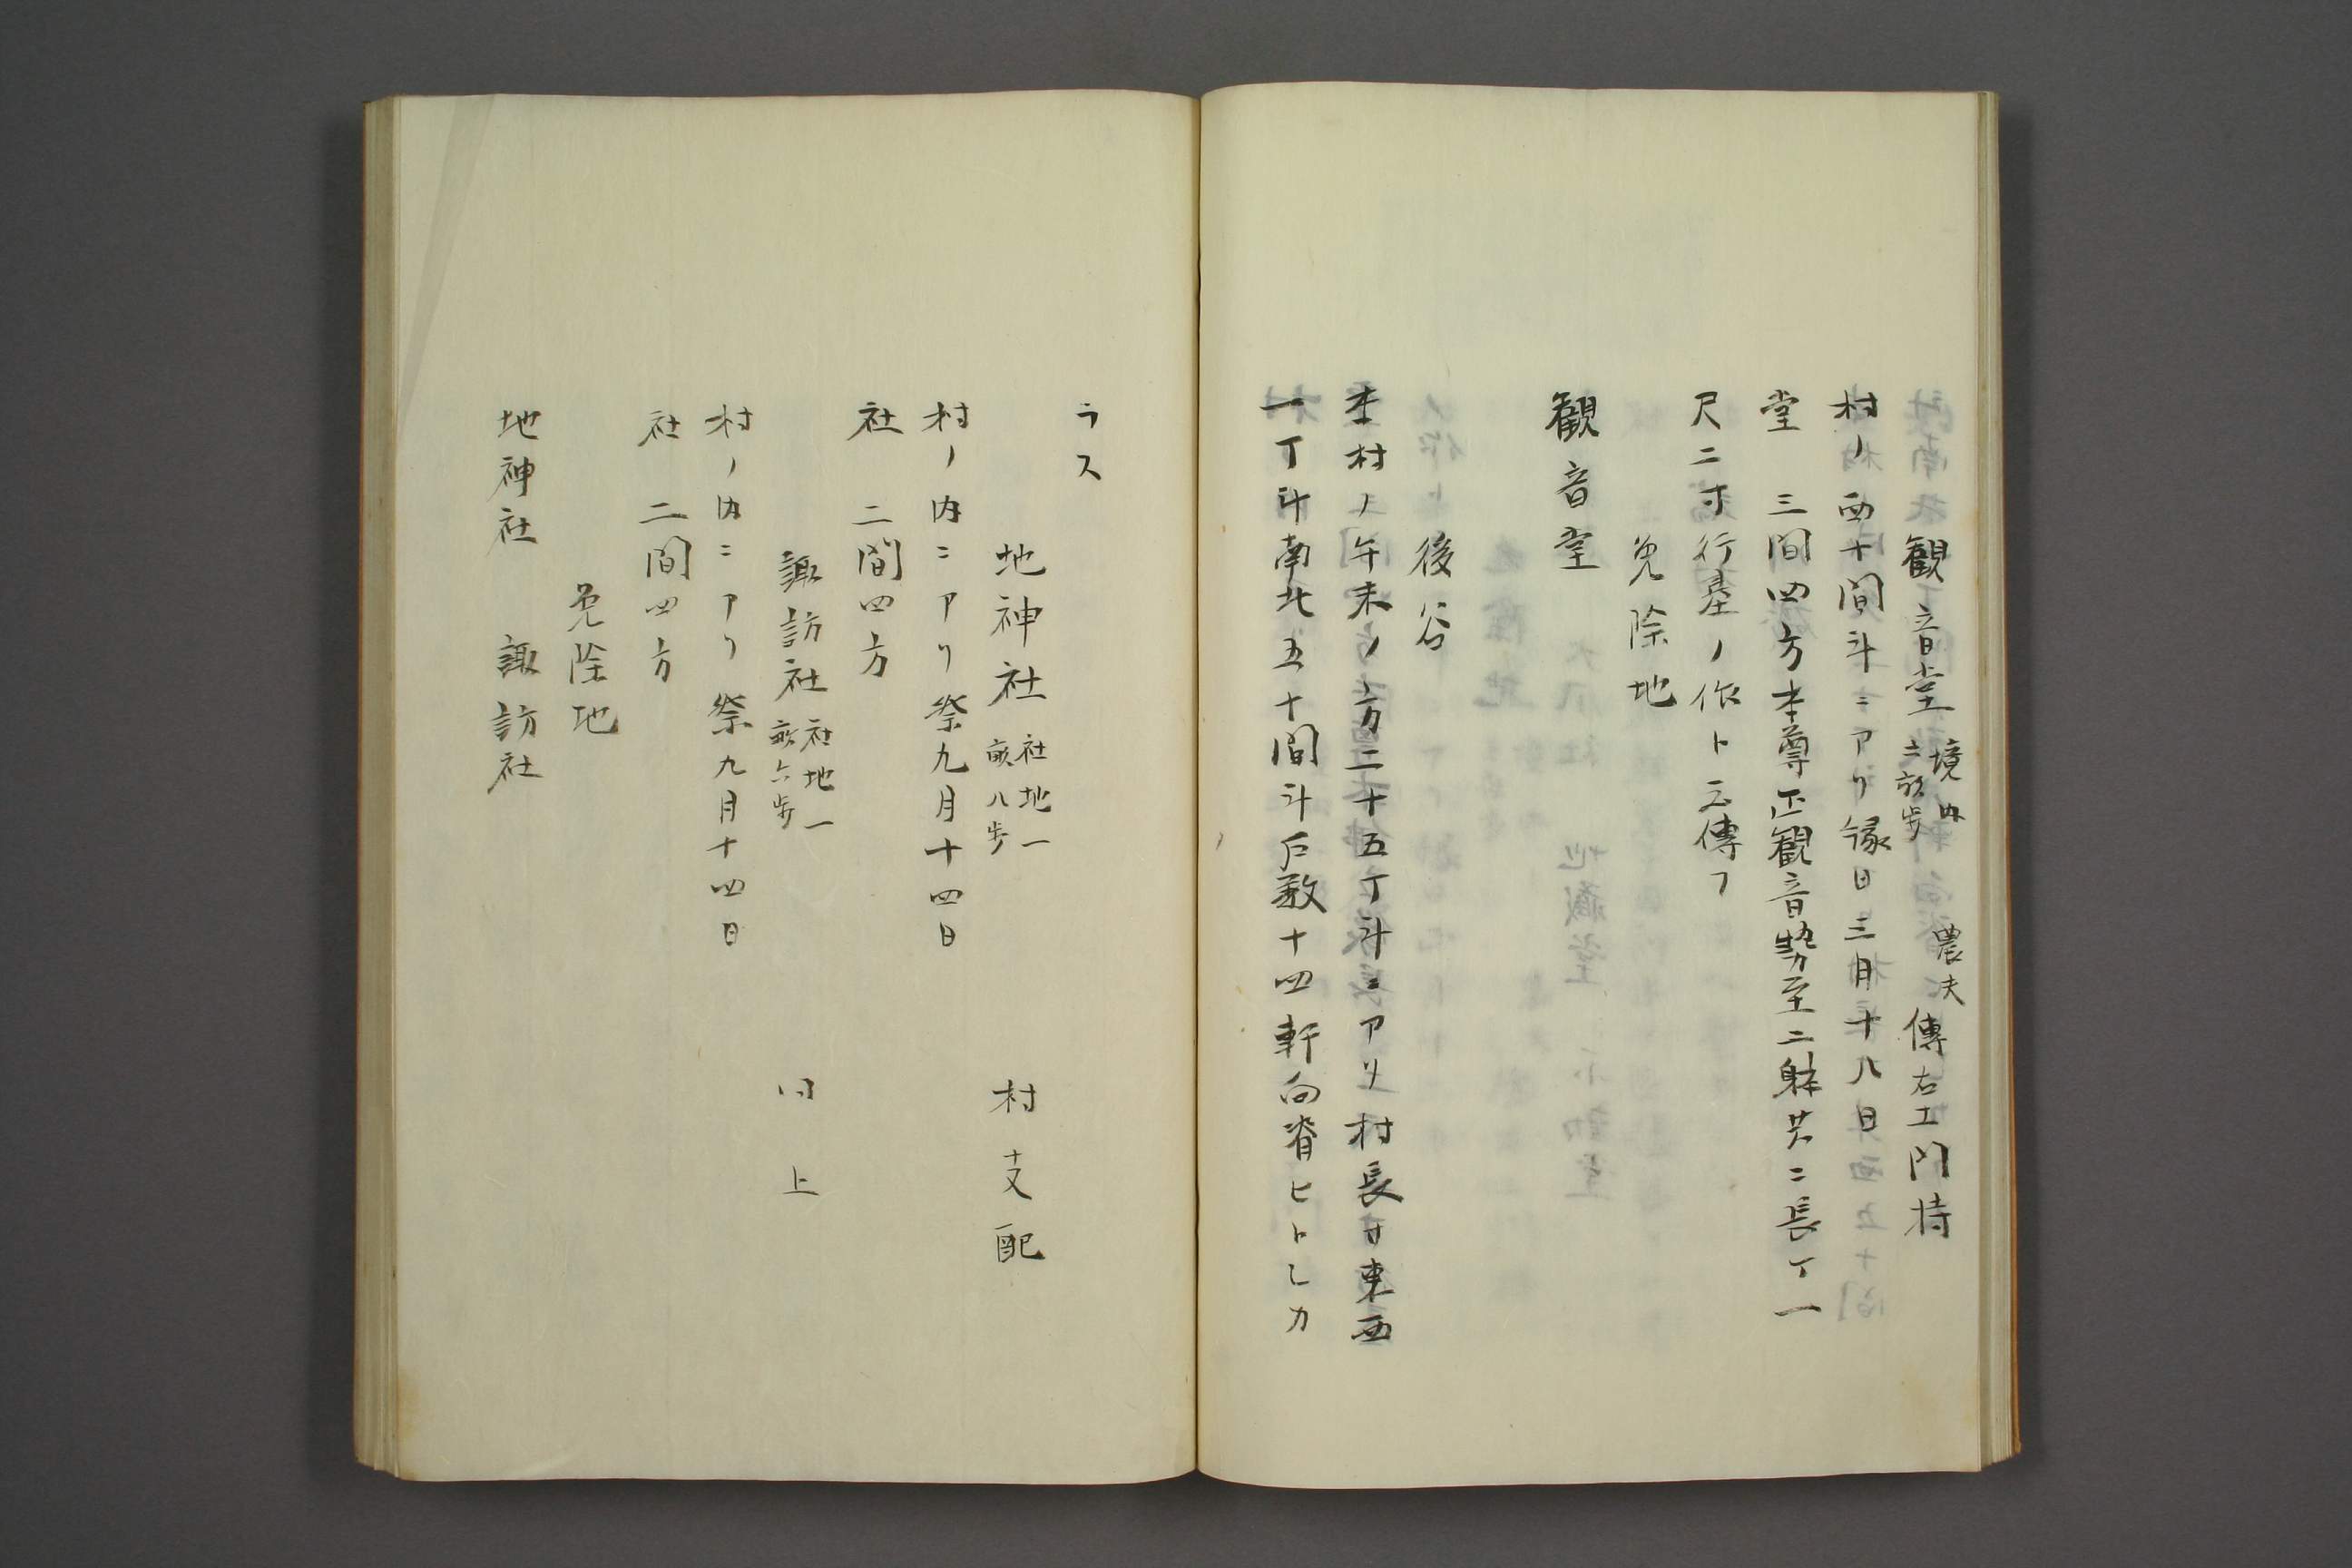 観音堂 境内二畝歩 農夫傳右エ門持
村ノ西十間斗ニアリ縁日三月十八日
堂 三間四方本尊正観音勢至二躰共ニ長丁一
尺二寸行基ノ作ト云傳フ
免除地
観音堂
後谷
本村ノ午未ノ方二十五丁斗ニアリ村長サ東西
一丁斗南北五十間斗戸数十四軒向脊ヒトシカ
ラス
地神社 社地一畝八歩 村支配
村ノ内ニアリ祭九月十四日
社 二間四方
諏訪社 社地一畝六歩 同上
村ノ内ニアリ祭九月十四日
社 二間四方
免除地
地神社 諏訪社